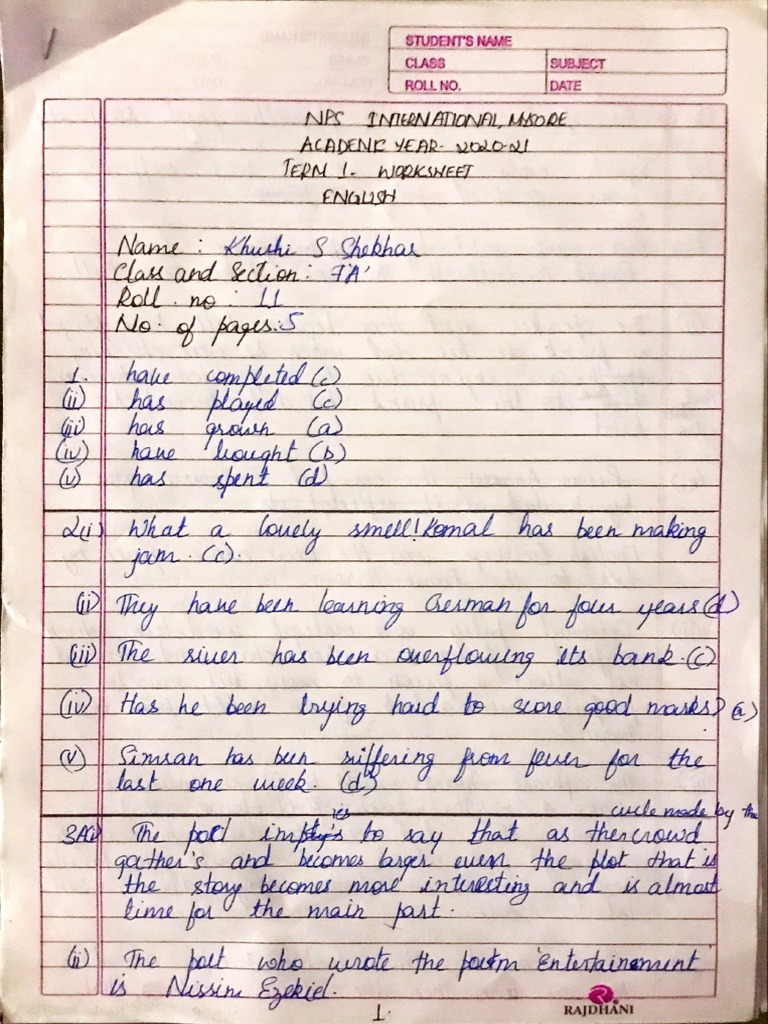 STUDENT'S NAME
CLASS SUBJECT
ROLL NO. DATE
NPS INTERNATIONAL, MYSORE
ACADEMIC YEAR- 2020-21
TERM 1- WORKSHEET
ENGLISH
Name : Khushi S Shekhar
Class and Section : 7'A'
Roll . no : 11
No. of pages:5
1. have completed (c)
(ii) has played (c)
(iii) has grown (a)
(iv) have bought (b)
(v) has spent (d)
2(i) What a lovely smell! Komal has been making
jam. (c).
(ii) They have been learning German for four years (d)
(iii) The river has been overflowing its bank. (c)
(iv) Has he been trying hard to score good marks? (a)
(v) Simran has been suffering from fever for the
last one week. (d)
ies circle made by the
3A(i) The poet implys to say that as the crowd
gather's and becomes larger even the plot that is
the story becomes more interesting and is almost
time for the main part.
(ii) The poet who wrote the poem 'Entertainment
is Nissim Ezekiel.
1.
RAJDHANI